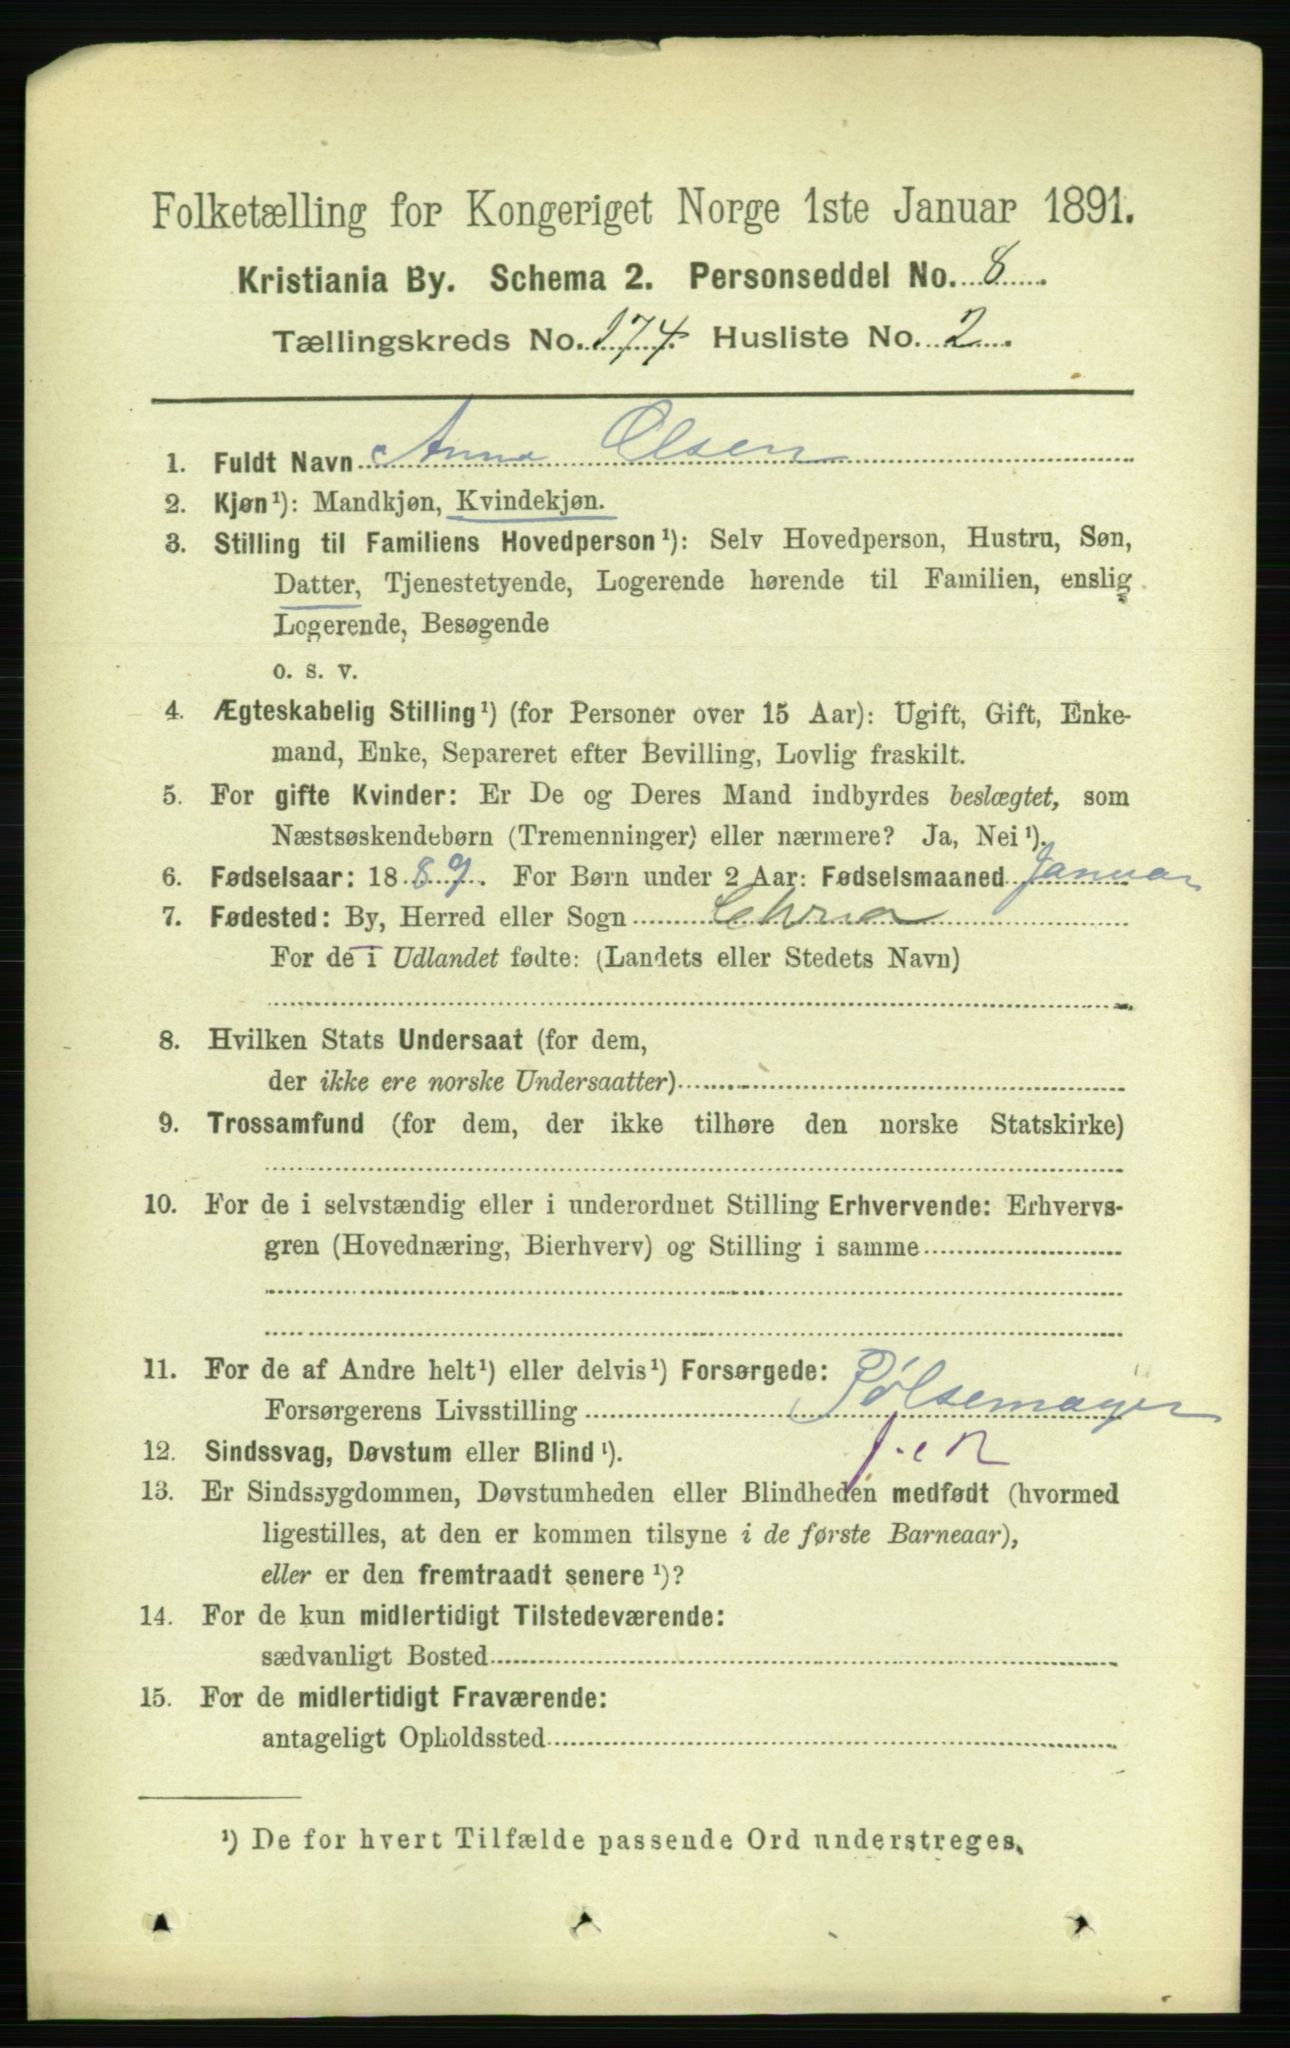 Folketælling for Kongeriget Norge 1ste Januar 1891.
Kristiania By. Schema 2. Personseddel No. 8
Tællingskreds No. 174. Husliste No. 2
1. Fuldt Navn Anna Olsen
2. Kjøn¹): Mandkjøn, Kvindekjøn.
3. Stilling til Familiens Hovedperson¹): Selv Hovedperson, Hustru, Søn,
Datter, Tjenestetyende, Logerende hørende til Familien, enslig
Logerende, Besøgende
o. s. v.
4. Ægteskabelig Stilling¹) (for Personer over 15 Aar): Ugift, Gift, Enke-
mand, Enke, Separeret efter Bevilling, Lovlig fraskilt.
5. For gifte Kvinder: Er De og Deres Mand indbyrdes beslægtet, som
Næstsøskendebørn (Tremenninger) eller nærmere? Ja, Nei¹).
6. Fødselsaar: 1889. For Børn under 2 Aar: Fødselsmaaned Januar
7. Fødested: By, Herred eller Sogn Chria
For de i Udlandet fødte: (Landets eller Stedets Navn)
8. Hvilken Stats Undersaat (for dem,
der ikke ere norske Undersaatter)
9. Trossamfund (for dem, der ikke tilhøre den norske Statskirke)
10. For de i selvstændig eller i underordnet Stilling Erhvervende: Erhvervs-
gren (Hovednæring, Bierhverv) og Stilling i samme
11. For de af Andre helt¹) eller delvis¹) Forsørgede:
Forsørgerens Livsstilling Pølsemager
12. Sindssvag, Døvstum eller Blind¹).
13. Er Sindssygdommen, Døvstumheden eller Blindheden medfødt (hvormed
ligestilles, at den er kommen tilsyne i de første Barneaar),
eller er den fremtraadt senere¹)?
14. For de kun midlertidigt Tilstedeværende:
sædvanligt Bosted
15. For de midlertidigt Fraværende:
antageligt Opholdssted
¹) De for hvert Tilfælde passende Ord understreges.